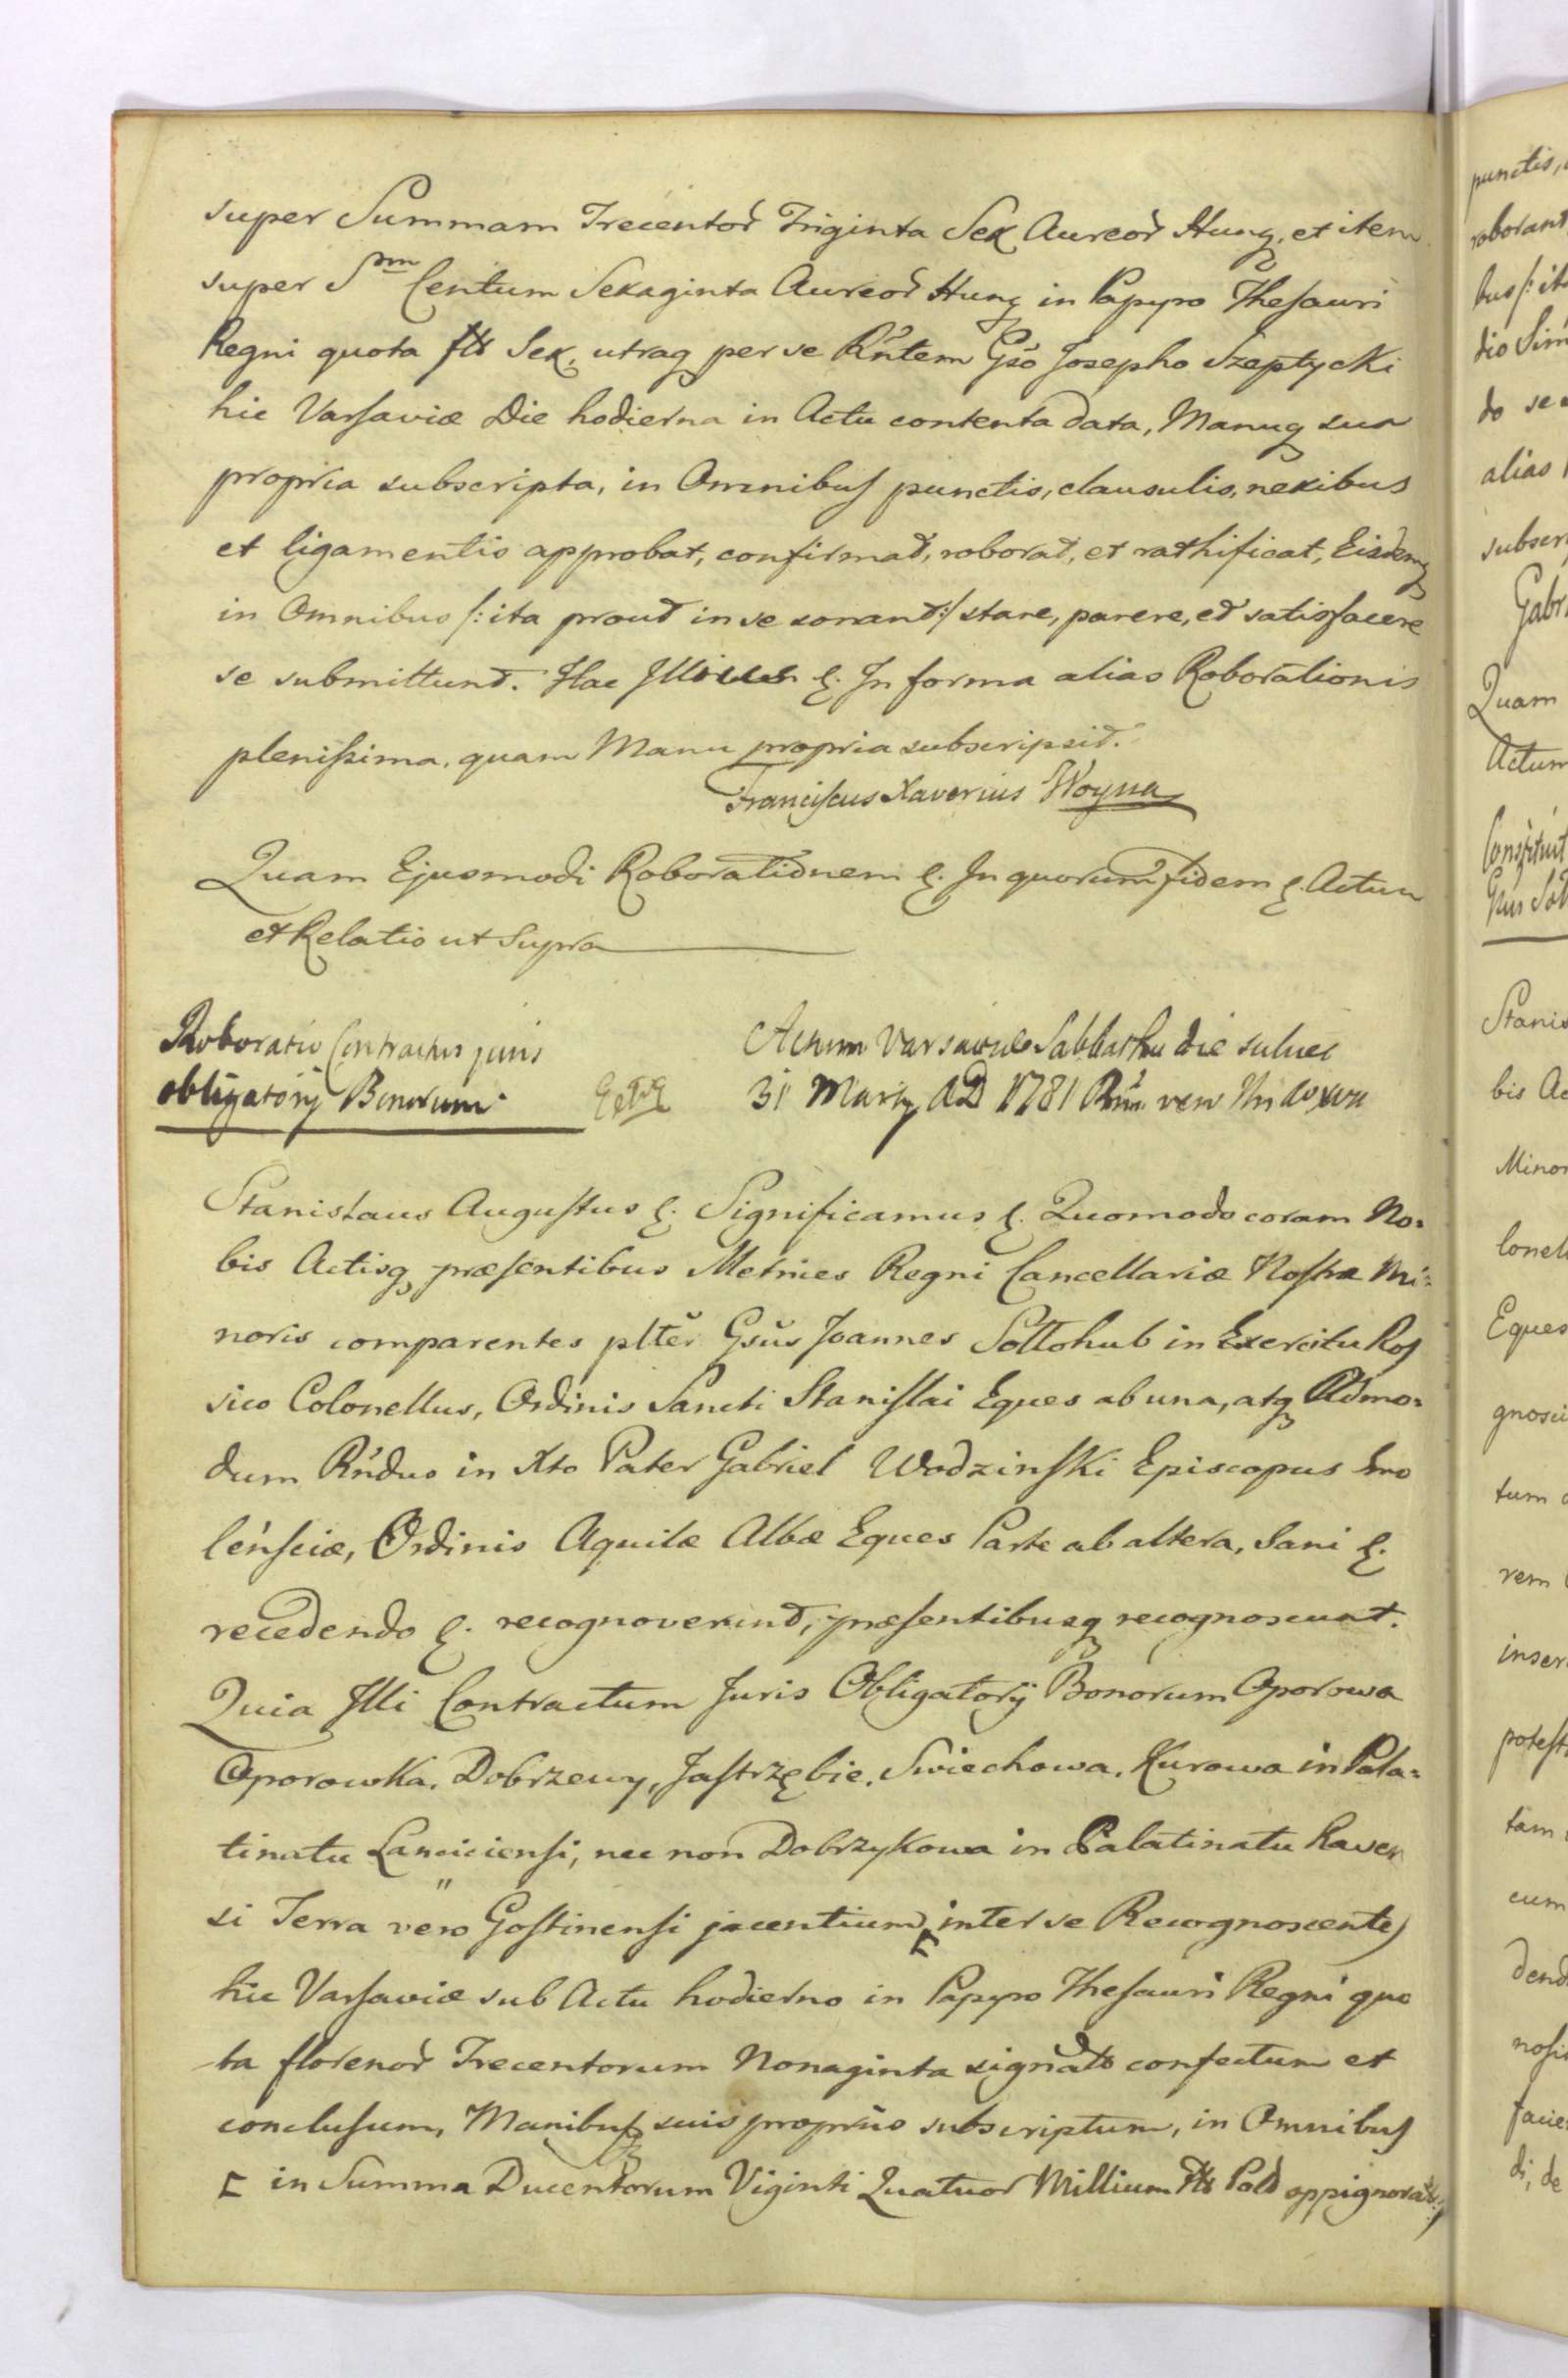 super Summam Trecentor̃ Triginta Sex Aureor̃ Hung, et item
super Sm̃ Centum Sexaginta Aureor̃ Hung in Papyro Thesauri
Regni quota fls Sex, utraq per se Rñtem Gsõ Josepho Szeptycki
hic Varsaviæ Die hodierna in Actu contenta data, Manuq sua
propria subscripta, in Omnibus punctis, clausulis, nexibus
et ligamentis approbat, confirmat, roborat, et rathificat, Eisdemq
in Omnibus /: ita prout in se sonant :/ stare, parere, et satisfacere
se submittunt. Hac &. In forma alias Roborationis
plenissima, quam Manu propria subscripsit.
Franciscus Xaverius Woyna
Quam Ejusmodi Roborationem &. In quorum fidem &. Actum
et Relatio ut Supra
Roboratio Contractus juris
obligatorij Bonorum
Actum Varsaviæ Sabbatho die
31 Martij AD 1781 vero
Stanislaus Augustus &. Significamus &. Quomodo coram No=
bis Actisq præsentibus Metrices Regni Cancellariæ Nostræ Mi=
noris comparentes pltẽr Gsũs Joannes Sollohub in Exercitu Ros
sico Colonellus, Ordinis Sancti Stanislai Eques ab una, atq Admo=
dum Rñdus in Xto Pater Gabriel Wodzinski Episcopus Smo
lensciæ, Ordinis Aquilæ Albæ Eques Parte ab altera, Sani &.
recedendo &. recognoverunt, præsentibusq recognoscunt.
Quia Illi Contractum Juris Obligatorij Bonorum Oporowa
Oporowka, Dobrzewy, Jastrzębie, Swiechowa, Kurowa in Pala=
tinatu Lanciciensi, nec non Dobrzykowa in Palatinatu Raven
si Terra vero Gostinensi jacentium inter se Recognoscentes
hic Varsaviæ sub Actu hodierno in Papyro Thesauri Regni quo
ta florenor̃ Trecentorum Nonaginta signato confectum et
conclusum, Manibusq suis proprijs subscriptum, in Omnibus
⊏ in Summa Ducentorum Viginti Quatuor Millium fls Pold oppignorat
punctis,
roborant
bus /: ita
dio Sim
do se
alias
subscr
Gabr
Quam
Actum
Constituit
Stanis
bis Ac
Minor
lonel
Eques
gnosc
tum
rem
inser
potest
tam
cum
dend
nosi
facie
di, de